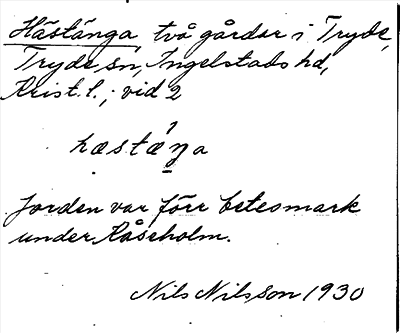 Hästänga, två gårdar i Tryde,
Tryde sn, Ingelstads hd,
Krist. l.; vid 2
hæstæ´ŋa
Jorden var förr betesmark
under Råseholm.
Nils Nilsson 1930